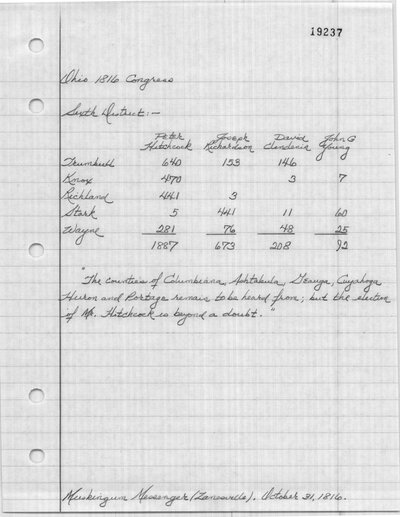 19237
Ohio 1816 Congress
Sixth District:—
Peter Joseph David John G
Hitchcock Richardson Clendenin Young
Trumbull 640 153 146
Knox 470 3 7
Richland 441 3
Stark 5 441 11 60
Wayne 281 76 48 25
1837 673 208 92
"The counties of Columbiana, Ashtabula, Geauga, Cuyahoga
Huron and Portage remain to be heard from; but the election
of Mr. Hitchcock is beyond a doubt."
Muskingum Messenger (Zanesville). October 31, 1816.